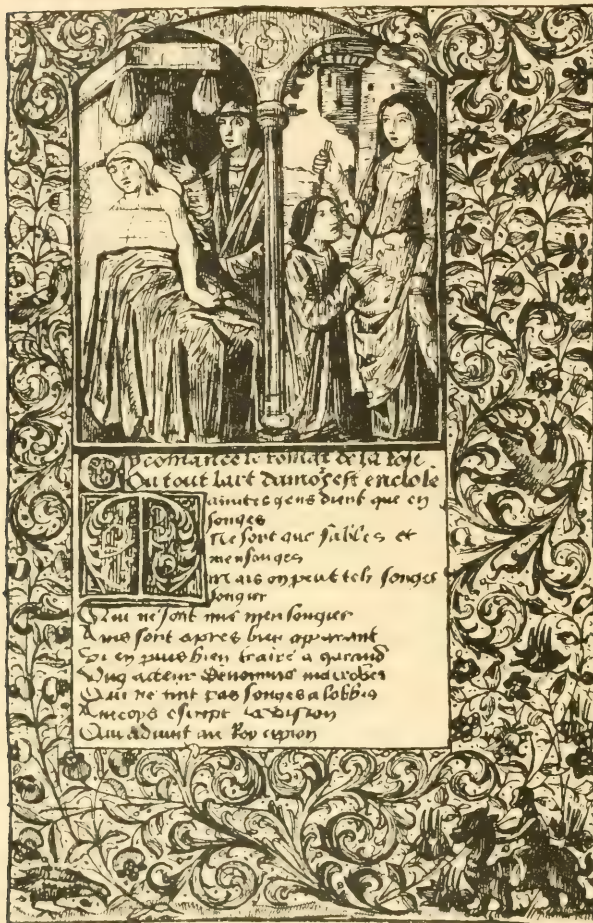 Cy comance le romãt de la rose
Ou tout lart damors est enclose
Maintes gens dient que en
songes
Ne sont que fables et
mensonges
Mais on peut telz songes
songier
Qui ne sont mie mensongier
Ains sont apres bien apparant
Si en puis bien traire a garand
Ung acteur denomme macrobes
Qui ne tint pas songes a lobbes
Ainçoys escript la vision
Qui advint au Roy cipion